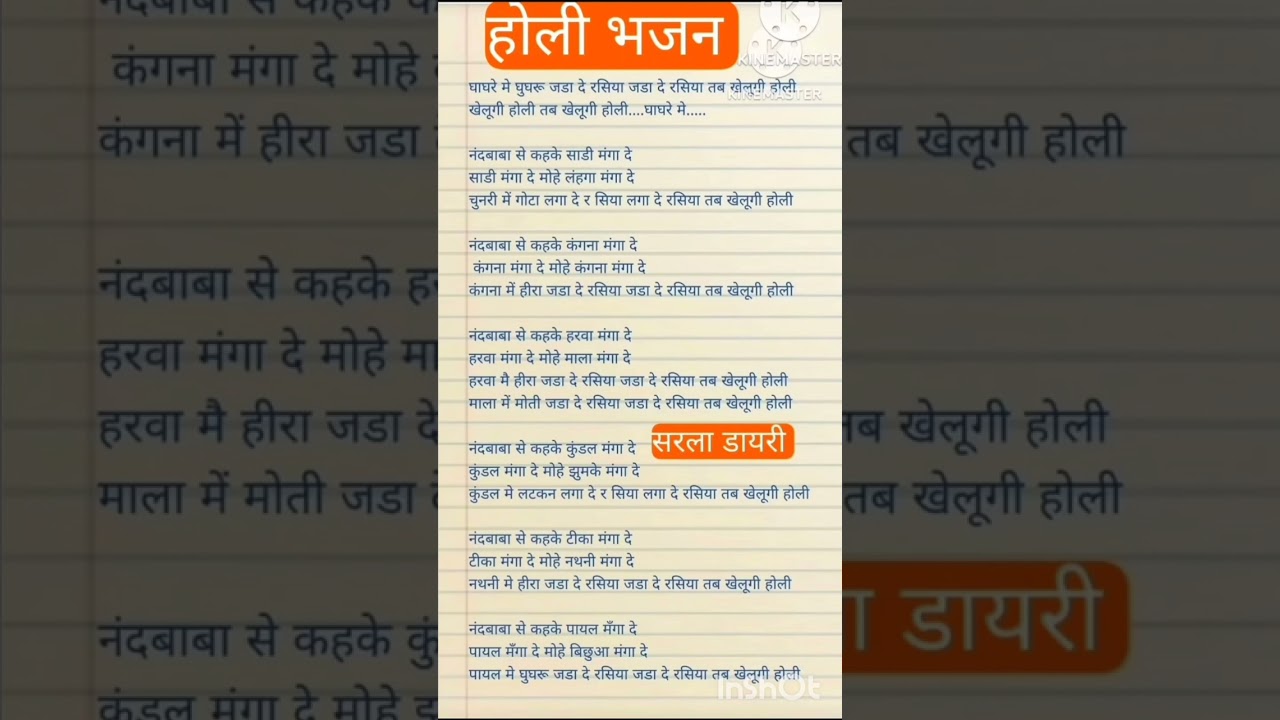 होली भजन
KINEMASTER
KINEMASTER
घाघरे मे घुघरू जडा दे रसिया जडा दे रसिया तब खेलूगी होली
खेलूगी होली तब खेलूगी होली....घाघरे मे.....
नंदबाबा से कहके साडी मंगा दे
साडी मंगा दे मोहे लंहगा मंगा दे
चुनरी में गोटा लगा दे र सिया लगा दे रसिया तब खेलूगी होली
नंदबाबा से कहके कंगना मंगा दे
कंगना मंगा दे मोहे कंगना मंगा दे
कंगना में हीरा जडा दे रसिया जडा दे रसिया तब खेलूगी होली
नंदबाबा से कहके हरवा मंगा दे
हरवा मंगा दे मोहे माला मंगा दे
हरवा मै हीरा जडा दे रसिया जडा दे रसिया तब खेलूगी होली
माला में मोती जडा दे रसिया जडा दे रसिया तब खेलूगी होली
सरला डायरी
नंदबाबा से कहके कुंडल मंगा दे
कुंडल मंगा दे मोहे झुमके मंगा दे
कुंडल मे लटकन लगा दे र सिया लगा दे रसिया तब खेलूगी होली
नंदबाबा से कहके टीका मंगा दे
टीका मंगा दे मोहे नथनी मंगा दे
नथनी मे हीरा जडा दे रसिया जडा दे रसिया तब खेलूगी होली
नंदबाबा से कहके पायल मँगा दे
पायल मँगा दे मोहे बिछुआ मंगा दे
पायल मे घुघरू जडा दे रसिया जडा दे रसिया तब खेलूगी होली
InShOt